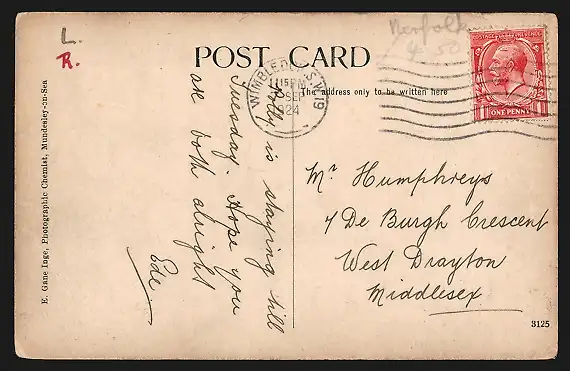 L.
R.
Norfolk
4.50
POST CARD
The address only to be written here
WIMBLEDON. S.W.19
15 PM
SEP
1924
POSTAGE REVENUE
ONE PENNY
Polly is staying till
Tuesday. Hope you
are both alright
Ede.
Mr Humphreys
7 De Burgh Crescent
West Drayton
Middlesex
E. Gane Inge, Photographic Chemist, Mundesley-on-Sea
3125